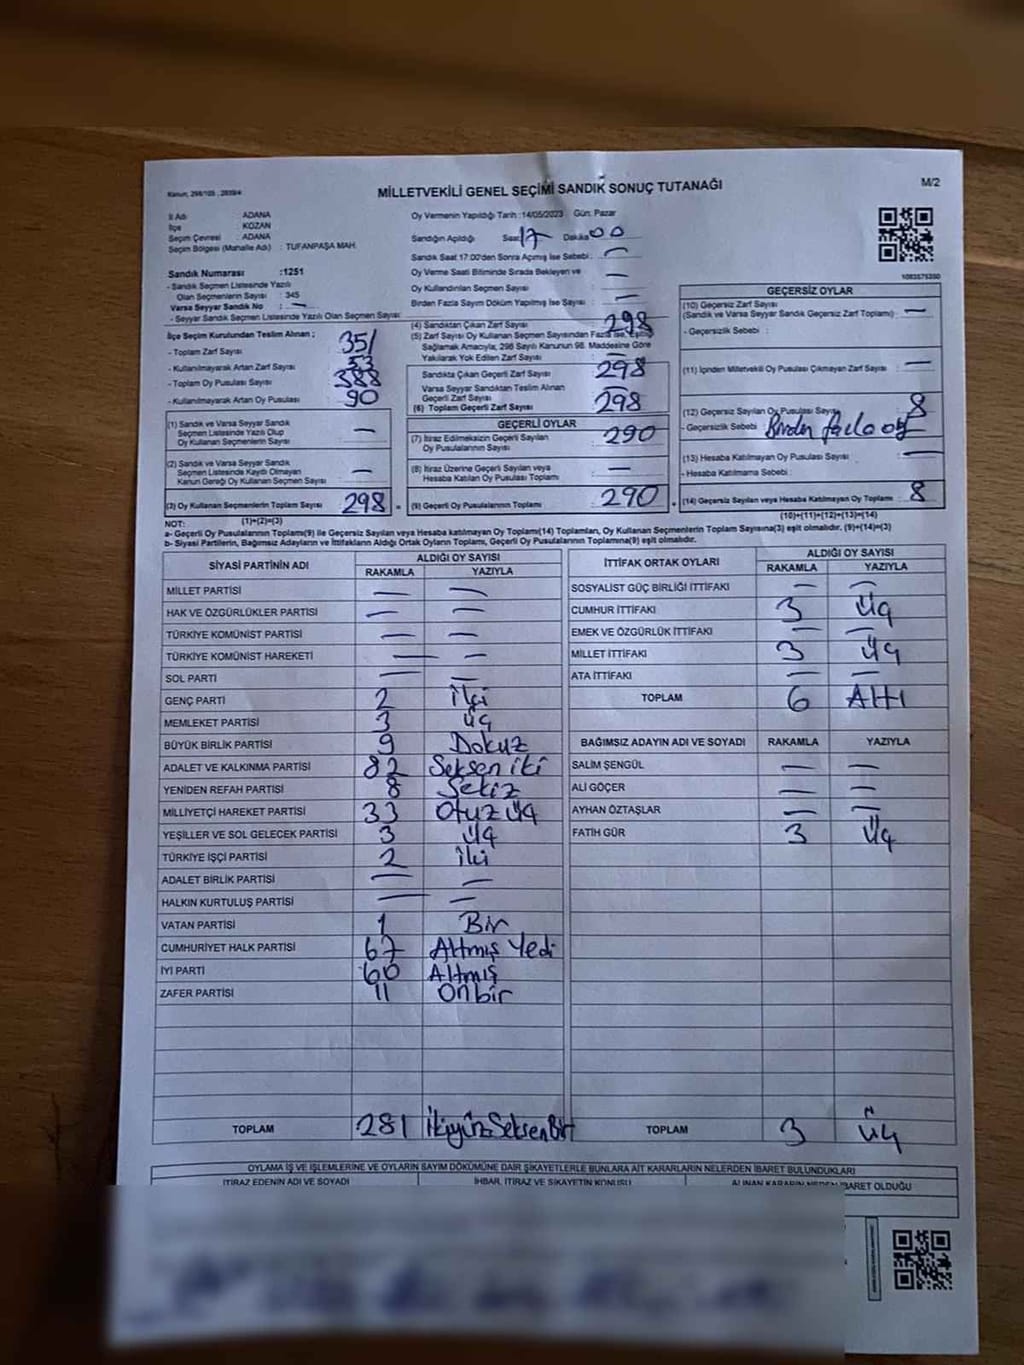 Kanun, 298/105 , 2839/4
MİLLETVEKİLİ GENEL SEÇİMİ SANDIK SONUÇ TUTANAĞI
M/2
İl Adı ADANA
İlçe KOZAN
Seçim Çevresi ADANA
Seçim Bölgesi (Mahalle Adı) : TUFANPAŞA MAH.
Sandık Numarası :1251
- Sandık Seçmen Listesinde Yazılı
Olan Seçmenlerin Sayısı : 345
Varsa Seyyar Sandık No : —
- Seyyar Sandık Seçmen Listesinde Yazılı Olan Seçmen Sayısı
Oy Vermenin Yapıldığı Tarih :14/05/2023 Gün: Pazar
Sandığın Açıldığı Saat 17 Dakika 00
Sandık Saat 17:00'den Sonra Açımış İse Sebebi : —
Oy Verme Saati Bitiminde Sırada Bekleyen ve —
Oy Kullandırılan Seçmen Sayısı :
Birden Fazla Sayım Döküm Yapılmış İse Sayısı : —
1083575350
İlçe Seçim Kurulundan Teslim Alınan ;
- Toplam Zarf Sayısı 351
- Kullanılmayarak Artan Zarf Sayısı 53
- Toplam Oy Pusulası Sayısı 388
- Kullanılmayarak Artan Oy Pusulası 90
(1) Sandık ve Varsa Seyyar Sandık
Seçmen Listesinde Yazılı Olup
Oy Kullanan Seçmenlerin Sayısı —
(2) Sandık ve Varsa Seyyar Sandık
Seçmen Listesinde Kayıtlı Olmayan
Kanun Gereği Oy Kullanan Seçmen Sayısı —
(3) Oy Kullanan Seçmenlerin Toplam Sayısı 298
(1)+(2)=(3)
(4) Sandıktan Çıkan Zarf Sayısı 298
(5) Zarf Sayısı Oy Kullanan Seçmen Sayısından Fazla ise, Eşitliği
Sağlamak Amacıyla, 298 Sayılı Kanunun 98. Maddesine Göre
Yakılarak Yok Edilen Zarf Sayısı : —
Sandıkta Çıkan Geçerli Zarf Sayısı 298
Varsa Seyyar Sandıktan Teslim Alınan
Geçerli Zarf Sayısı —
(6) Toplam Geçerli Zarf Sayısı 298
GEÇERLİ OYLAR
(7) İtiraz Edilmeksizin Geçerli Sayılan
Oy Pusulalarının Sayısı 290
(8) İtiraz Üzerine Geçerli Sayılan veya
Hesaba Katılan Oy Pusulası Toplamı —
(9) Geçerli Oy Pusulalarının Toplamı 290
GEÇERSİZ OYLAR
(10) Geçersiz Zarf Sayısı
(Sandık ve Varsa Seyyar Sandık Geçersiz Zarf Toplamı) : —
- Geçersizlik Sebebi :
(11) İçinden Milletvekili Oy Pusulası Çıkmayan Zarf Sayısı : —
(12) Geçersiz Sayılan Oy Pusulası Sayısı 8
- Geçersizlik Sebebi Birden fazla oy
(13) Hesaba Katılmayan Oy Pusulası Sayısı : —
- Hesaba Katılmama Sebebi :
(14) Geçersiz Sayılan veya Hesaba Katılmayan Oy Toplamı 8
(10)+(11)+(12)+(13)=(14)
NOT:
a- Geçerli Oy Pusulalarının Toplamı(9) ile Geçersiz Sayılan veya Hesaba katılmayan Oy Toplam(14) Toplamları, Oy Kullanan Seçmenlerin Toplam Sayısına(3) eşit olmalıdır. (9)+(14)=(3)
b- Siyasi Partilerin, Bağımsız Adayların ve İttifakların Aldığı Ortak Oyların Toplamı, Geçerli Oy Pusulalarının Toplamına(9) eşit olmalıdır.
SİYASİ PARTİNİN ADI ALDIĞI OY SAYISI
RAKAMLA YAZIYLA
MİLLET PARTİSİ — —
HAK VE ÖZGÜRLÜKLER PARTİSİ — —
TÜRKİYE KOMÜNİST PARTİSİ — —
TÜRKİYE KOMÜNİST HAREKETİ — —
SOL PARTİ — —
GENÇ PARTİ 2 İki
MEMLEKET PARTİSİ 3 Üç
BÜYÜK BİRLİK PARTİSİ 9 Dokuz
ADALET VE KALKINMA PARTİSİ 82 Seksen iki
YENİDEN REFAH PARTİSİ 8 Sekiz
MİLLİYETÇİ HAREKET PARTİSİ 33 Otuz üç
YEŞİLLER VE SOL GELECEK PARTİSİ 3 Üç
TÜRKİYE İŞÇİ PARTİSİ 2 İki
ADALET BİRLİK PARTİSİ — —
HALKIN KURTULUŞ PARTİSİ — —
VATAN PARTİSİ 1 Bir
CUMHURİYET HALK PARTİSİ 67 Altmış Yedi
İYİ PARTİ 60 Altmış
ZAFER PARTİSİ 11 Onbir
TOPLAM 281 İkiyüzSeksenBir
İTTİFAK ORTAK OYLARI ALDIĞI OY SAYISI
RAKAMLA YAZIYLA
SOSYALİST GÜÇ BİRLİĞİ İTTİFAKI — —
CUMHUR İTTİFAKI 3 Üç
EMEK VE ÖZGÜRLÜK İTTİFAKI — —
MİLLET İTTİFAKI 3 Üç
ATA İTTİFAKI — —
TOPLAM 6 Altı
BAĞIMSIZ ADAYIN ADI VE SOYADI RAKAMLA YAZIYLA
SALİM ŞENGÜL — —
ALİ GÖÇER — —
AYHAN ÖZTAŞLAR — —
FATİH GÜR 3 Üç
TOPLAM 3 Üç
OYLAMA İŞ VE İŞLEMLERİNE VE OYLARIN SAYIM DÖKÜMÜNE DAİR ŞİKAYETLERLE BUNLARA AİT KARARLARIN NELERDEN İBARET BULUNDUKLARI
İTİRAZ EDENİN ADI VE SOYADI İHBAR, İTİRAZ VE ŞİKAYETİN KONUSU ALINAN KARARIN NEDEN İBARET OLDUĞU